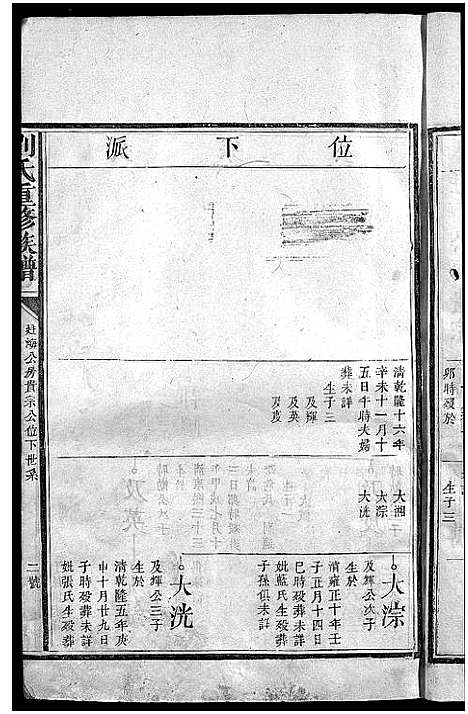 位下派
清乾隆十六年
辛未十一月十
五日午時夫婦
葬未詳
生子三
及輝
及英
及茂
大湘
大淙
大洸
大淙
及輝公次子
生於
清雍正十年壬
子正月十四日
巳時殁葬未詳
妣藍氏生殁葬
子孫俱未詳
大洸
及輝公三子
生於
清乾隆五年庚
申十月廿九日
子時殁葬未詳
妣張氏生殁葬
劉氏重修族譜
公房貴宗公位下世系
二號
卯時殁於
生子三